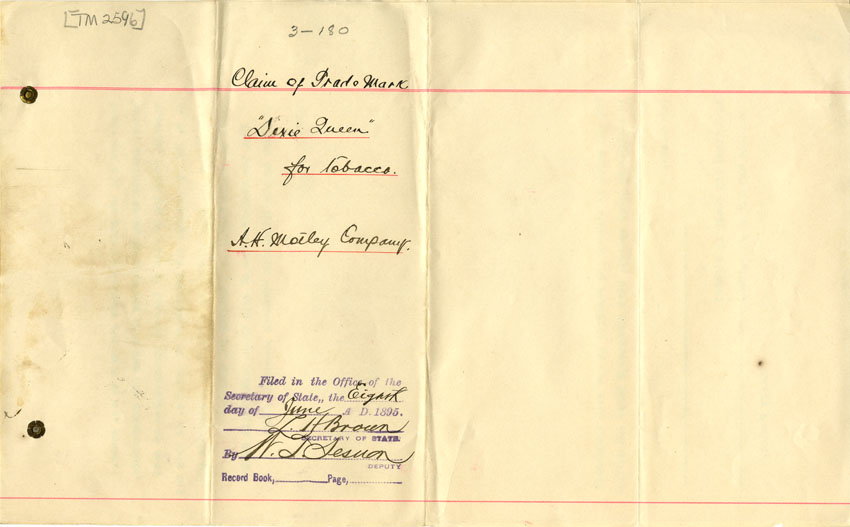 [TM 2596]
3-180
Claim of Trade Mark
"Dixie Queen"
for Tobacco.
A.H. Motley Company.
Filed in the Office of the
Secretary of State, the Eighth
day of June A D. 1895.
L. H Brown
SECRETARY OF STATE.
By W. T. Sesnon
DEPUTY
Record Book, Page,